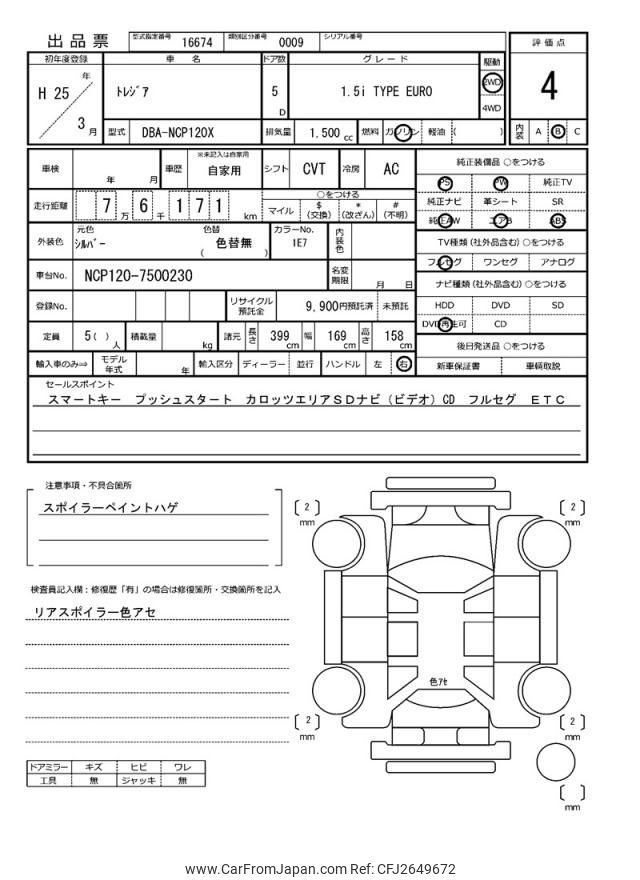 出品票 型式指定番号 16674 類別区分番号 0009 シリアル番号
評価点
4
初年度登録 車名 ドア数 グレード 駆動
H 25 年 3 月 トレジア 5 D 1.5i TYPE EURO 2WD 4WD
型式 DBA-NCP120X 排気量 1,500 cc 燃料 ガソリン 軽油 ( ) 内装 A B C
車検 年 月 車歴 ※未記入は自家用 自家用 シフト CVT 冷房 AC
純正装備品 ○をつける
PS PW 純正TV
純正ナビ 革シート SR
純正AW エアB ABS
走行距離 7 万 6 千 1 7 1 km
○をつける
マイル $ (交換) * (改ざん) # (不明)
外装色 元色 シルバー 色替 ( 色替無 ) カラーNo. 1E7 内装色
TV種類 (社外品含む) ○をつける
フルセグ ワンセグ アナログ
車台No. NCP120-7500230 名変期限 月 日
ナビ種類 (社外品含む) ○をつける
HDD DVD SD
DVD再生可 CD
登録No. リサイクル預託金 9,900円預託済 未預託
定員 5 ( ) 人 積載量 kg 諸元 長さ 399 cm 幅 169 cm 高さ 158 cm
後日発送品 ○をつける
新車保証書 車輌取説
輸入車のみ⇒ モデル年式 年 輸入区分 ディーラー 並行 ハンドル 左 右
セールスポイント
スマートキー プッシュスタート カロッツエリアSDナビ (ビデオ) CD フルセグ ETC
注意事項・不具合箇所
スポイラーペイントハゲ
検査員記入欄：修復歴「有」の場合は修復箇所・交換箇所を記入
リアスポイラー色アセ
2 mm
2 mm
色アセ
2 mm
2 mm
mm
ドアミラー キズ ヒビ ワレ
工具 無 ジャッキ 無
www.CarFromJapan.com Ref: CFJ2649672